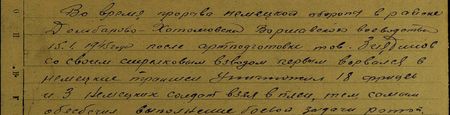 Во время прорыва немецкой обороны в районе
Домбаново-Хотомовска Варшавского воеводства
15.1.1945 года после артподготовки тов.
со своим стрелковым взводом первым ворвался в
немецкие траншеи уничтожил 18 фрицев
и 3 немецких солдат взял в плен, тем самым
обеспечил выполнение боевой задачи ротой.